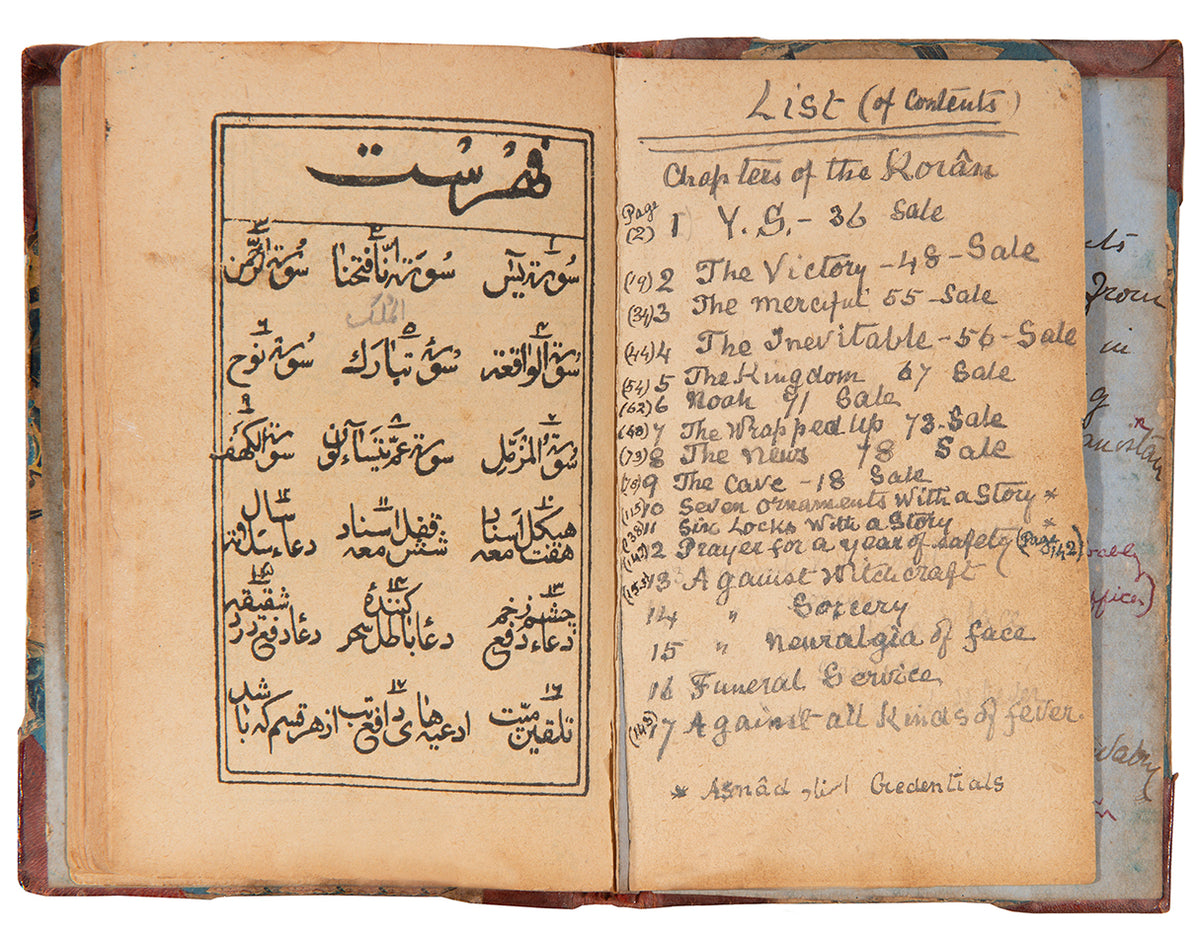 فهرست
١ ٢ ٣
سورة یس سورة انا فتحنا سورة الرحمن
الملک
٤ ٥ ٦
سورة الواقعة سورة تبارك سورة نوح
٧ ٨ ٩
سورة المزمل سورة عم یتساءلون سورة الکهف
١٠ ١١ ١٢
هفت هیکل معه اسناد شش قفل معه اسناد دعاء سال
١٣ ١٤ ١٥
دعاء دفع چشم زخم دعا باطل کنندۀ سحر دعا دفع درد شقیقه
١٦ ١٧
تلقین میت ادعیه های دافع تب از هر قسم که باشد
List (of Contents)
Chapters of the Korân
Page
(2) 1 Y.S. - 36 Sale
(19) 2 The Victory - 48 - Sale
(34) 3 The merciful 55 - Sale
(44) 4 The Inevitable - 56 - Sale
(54) 5 The Kingdom 67 Sale
(62) 6 Noah 71 Sale
(68) 7 The Wrapped Up 73 - Sale
(73) 8 The News 78 Sale
(78) 9 The Cave - 18 Sale
(115) 10 Seven Ornaments with a Story *
(138) 11 Six Locks with a Story *
(142) 12 Prayer for a year of safety (Page 142)
(153) 13 Against Witchcraft
14 " Sorcery
15 " Neuralgia of face
16 Funeral Service
(145) 17 Against all Kinds of fever.
* Asnâd اسناد Credentials
from
in